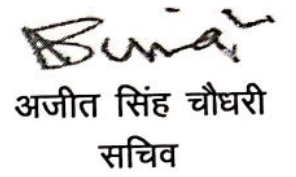 अजीत सिंह चौधरी
सचिव